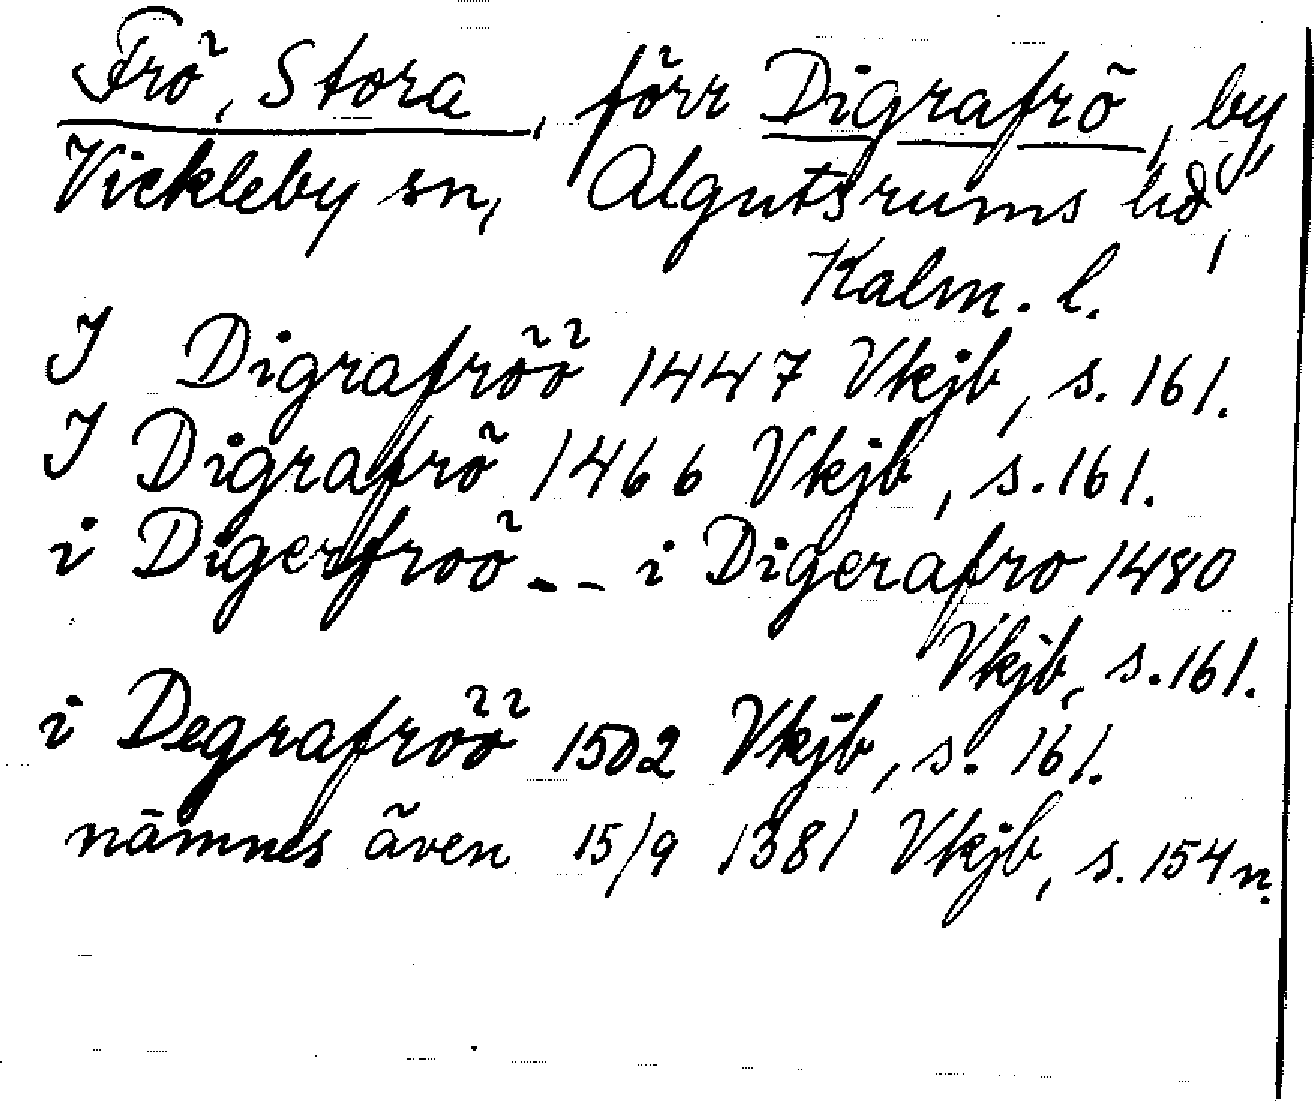 Frö, Stora, förr Digrafrö, by
Vickleby sn, Algutsrums hd,
Kalm. l.
I Digrafröö 1447 Vkjb, s. 161.
I Digrafrö 1466 Vkjb, s. 161.
i Digerfroö -- i Digerafro 1480
Vkjb, s. 161.
i Degrafröö 1502 Vkjb, s. 161.
nämnes även 15/9 1381 Vkjb, s. 154 n.